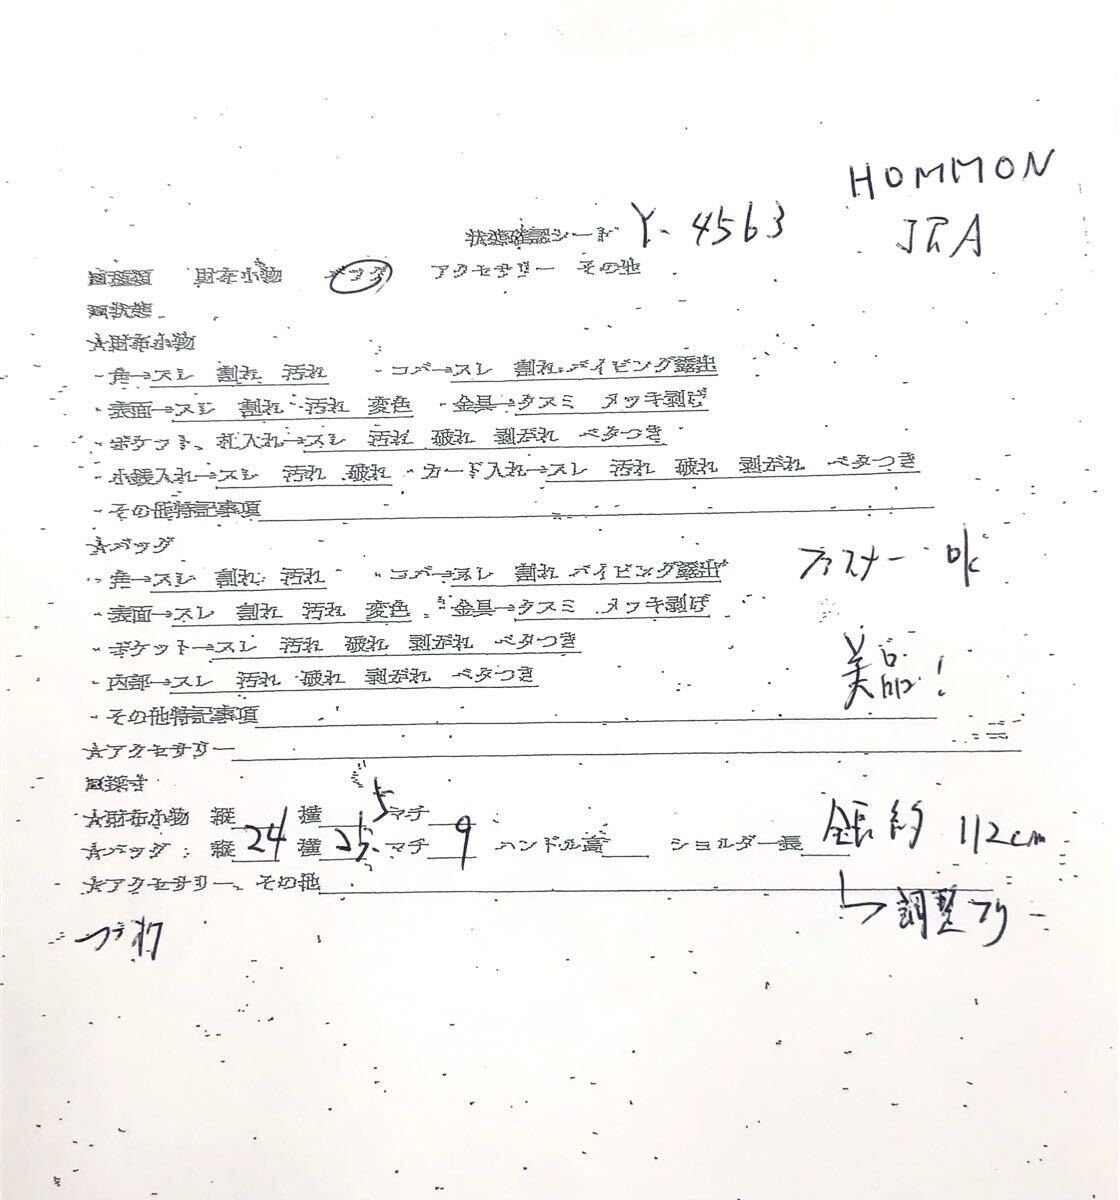 HOMMON
JRA
状態確認シート Y-4563
■種類 財布小物 バッグ アクセサリー その他
■状態
★財布小物
・角→スレ 割れ 汚れ ・コバ→スレ 割れ パイピング露出
・表面→スレ 割れ 汚れ 変色 ・金具→クスミ メッキ剥げ
・ポケット、札入れ→スレ 汚れ 破れ 剥がれ ベタつき
・小銭入れ→スレ 汚れ 破れ ・カード入れ→スレ 汚れ 破れ 剥がれ ベタつき
・その他特記事項
★バッグ
ファスナー ok
・角→スレ 割れ 汚れ ・コバ→スレ 割れ パイピング露出
・表面→スレ 割れ 汚れ 変色 ・金具→クスミ メッキ剥げ
・ポケット→スレ 汚れ 破れ 剥がれ ベタつき
美品!
・内部→スレ 汚れ 破れ 剥がれ ベタつき
・その他特記事項
★アクセサリー
■採寸
★財布小物 縦 横 マチ
★バッグ:縦24 横25.5 マチ9 ハンドル高 ショルダー長 全長約112cm
★アクセサリー、その他
↳調整アリ